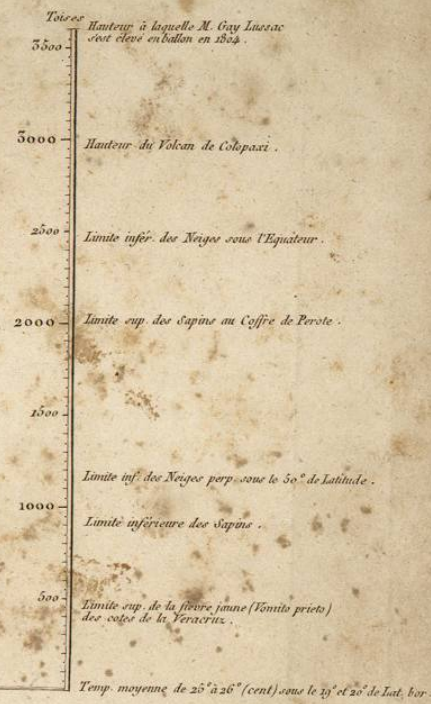 Toises
Hauteur à laquelle M. Gay Lussac
s'est élevé en ballon en 1804.
3500
3000
Hauteur du Volcan de Cotopaxi.
2500
Limite infér. des Neiges sous l'Equateur.
2000
Limite sup. des Sapins au Coffre de Perote.
1500
Limite inf. des Neiges perp. sous le 50.° de Latitude.
1000
Limite inférieure des Sapins.
500
Limite sup. de la fievre jaune (Vomito prieto)
des cotes de la Veracruz.
Temp. moyenne de 25° à 26° (cent) sous le 19° et 20° de Lat. bor.